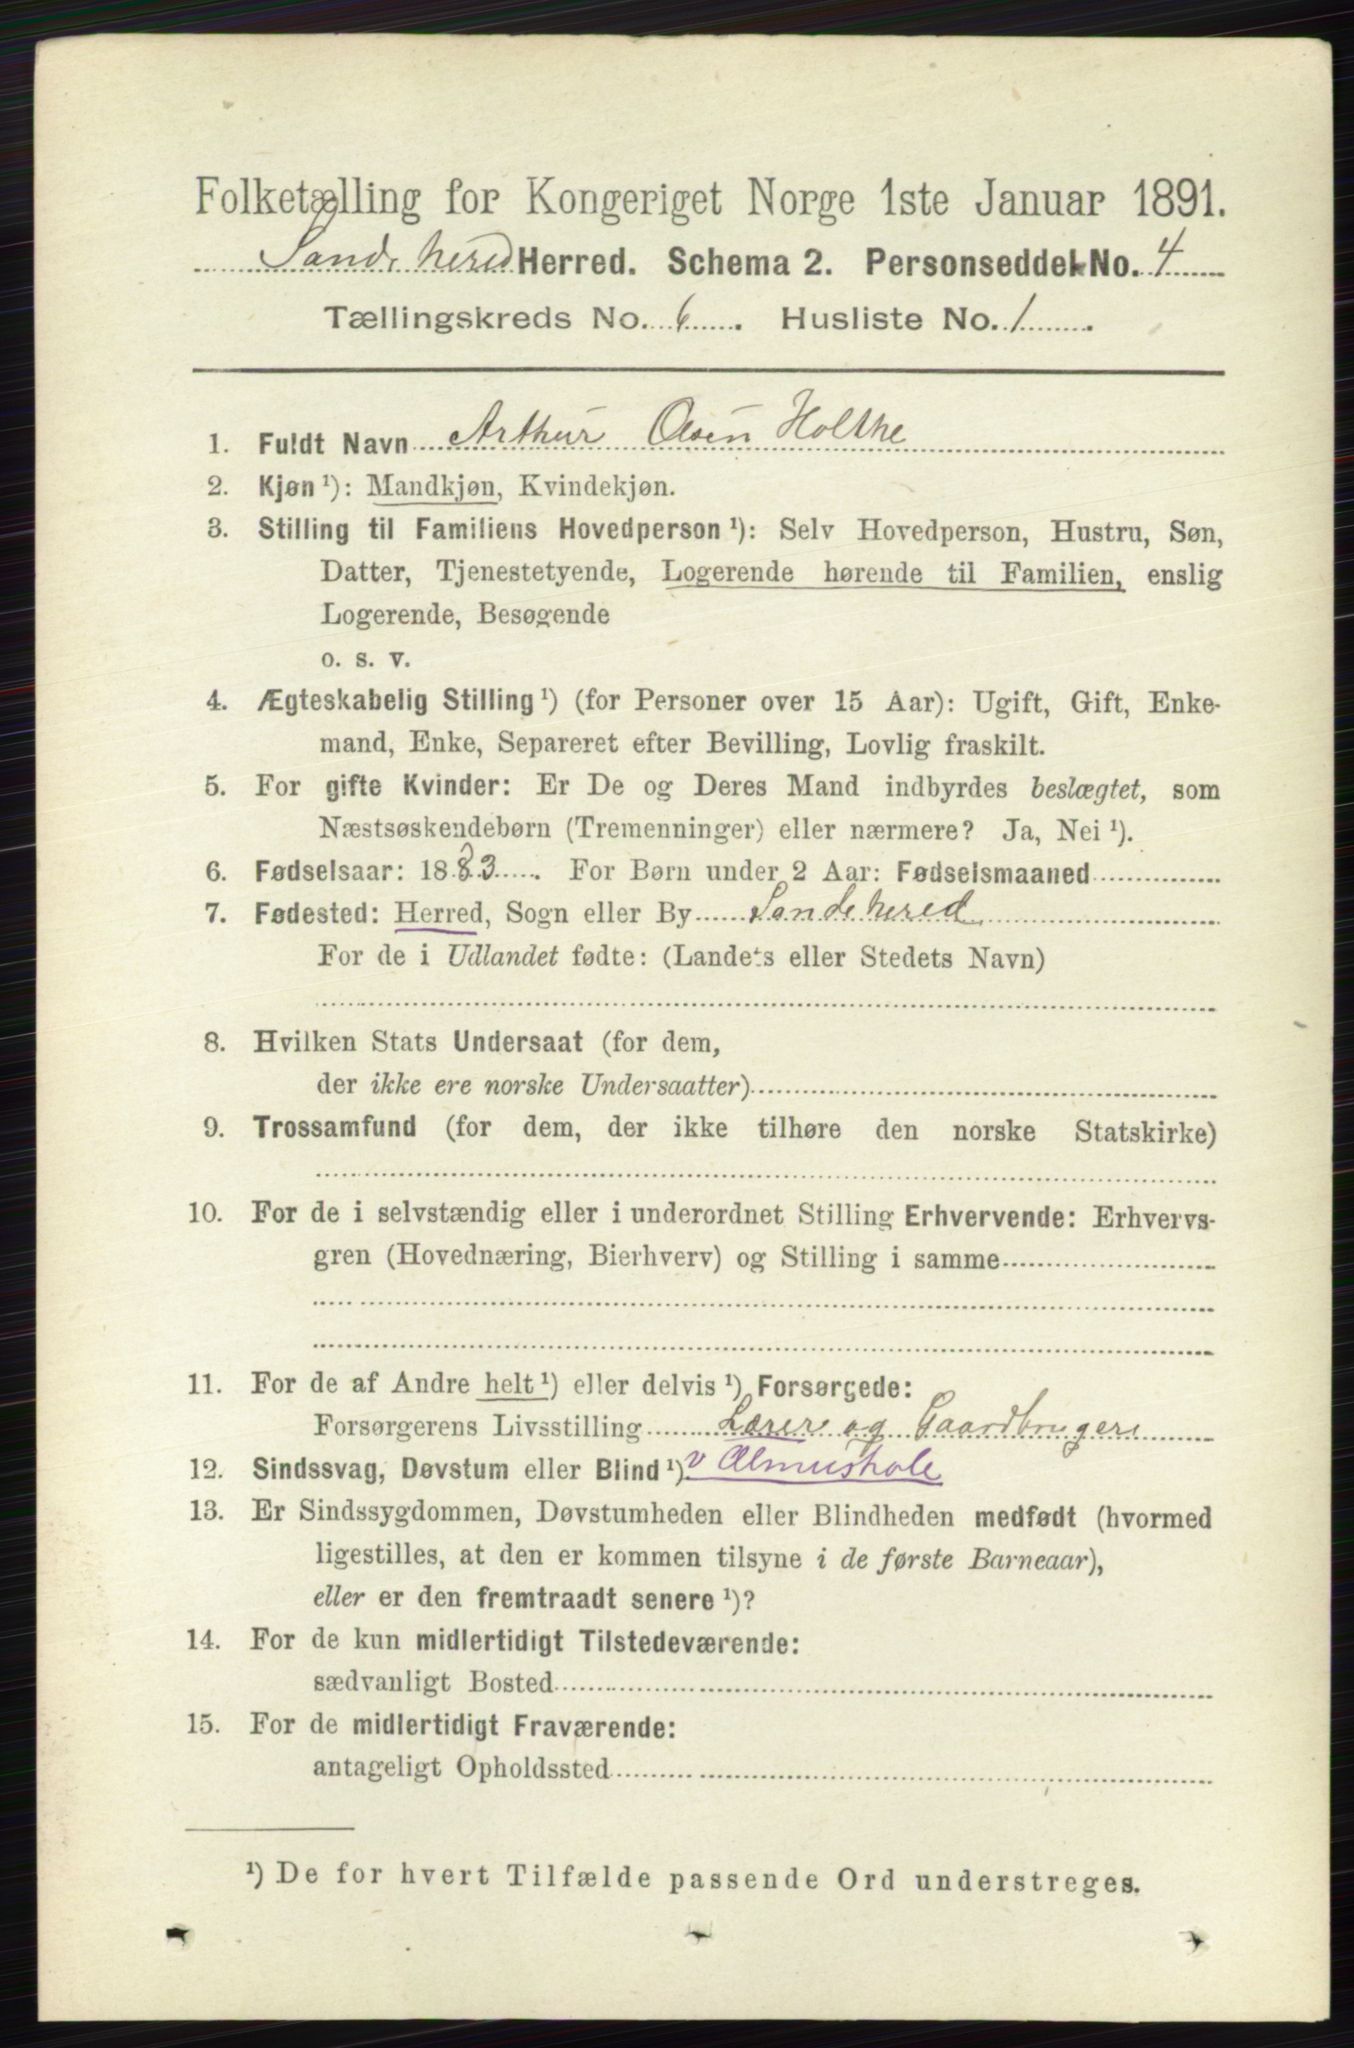 Folketælling for Kongeriget Norge 1ste Januar 1891.
Sandehered Herred. Schema 2. Personseddel No. 4
Tællingskreds No. 6. Husliste No. 1.
1. Fuldt Navn Arthur Olsen Holthe
2. Kjøn ¹): Mandkjøn, Kvindekjøn.
3. Stilling til Familiens Hovedperson ¹): Selv Hovedperson, Hustru, Søn,
Datter, Tjenestetyende, Logerende hørende til Familien, enslig
Logerende, Besøgende
o. s. v.
4. Ægteskabelig Stilling ¹) (for Personer over 15 Aar): Ugift, Gift, Enke-
mand, Enke, Separeret efter Bevilling, Lovlig fraskilt.
5. For gifte Kvinder: Er De og Deres Mand indbyrdes beslægtet, som
Næstsøskendebørn (Tremenninger) eller nærmere? Ja, Nei ¹).
6. Fødselsaar: 1883. For Børn under 2 Aar: Fødselsmaaned
7. Fødested: Herred, Sogn eller By Sandehered
For de i Udlandet fødte: (Landets eller Stedets Navn)
8. Hvilken Stats Undersaat (for dem,
der ikke ere norske Undersaatter)
9. Trossamfund (for dem, der ikke tilhøre den norske Statskirke)
10. For de i selvstændig eller i underordnet Stilling Erhvervende: Erhvervs-
gren (Hovednæring, Bierhverv) og Stilling i samme
11. For de af Andre helt ¹) eller delvis ¹) Forsørgede:
Forsørgerens Livsstilling Lærer og Gaardbruger
12. Sindssvag, Døvstum eller Blind ¹). v Almuskole
13. Er Sindssygdommen, Døvstumheden eller Blindheden medfødt (hvormed
ligestilles, at den er kommen tilsyne i de første Barneaar),
eller er den fremtraadt senere ¹)?
14. For de kun midlertidigt Tilstedeværende:
sædvanligt Bosted
15. For de midlertidigt Fraværende:
antageligt Opholdssted
¹) De for hvert Tilfælde passende Ord understreges.